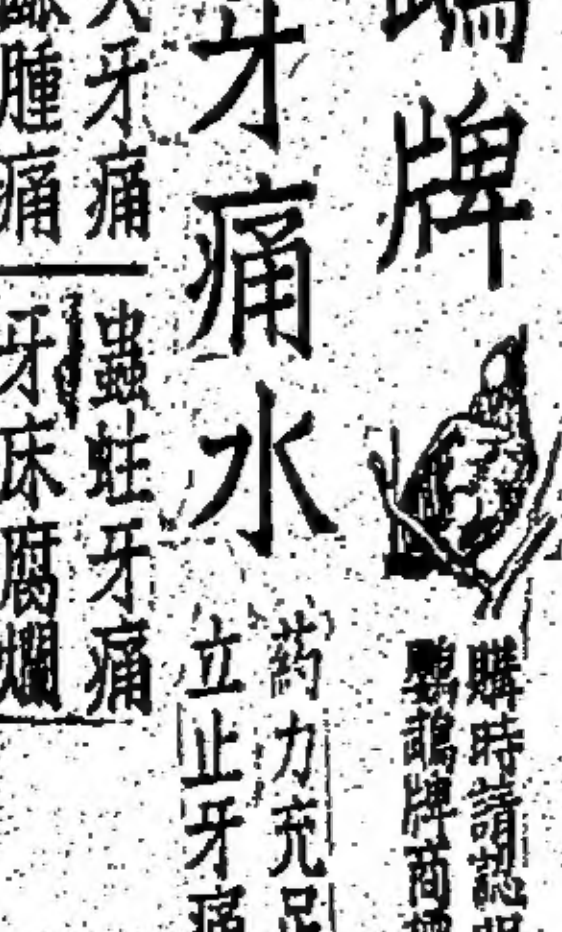 牌
購時請認明
鸚鵡牌商標
牙痛水
药力充足
立止牙痛
火牙痛
蟲蛀牙痛
腫痛
牙床腐爛